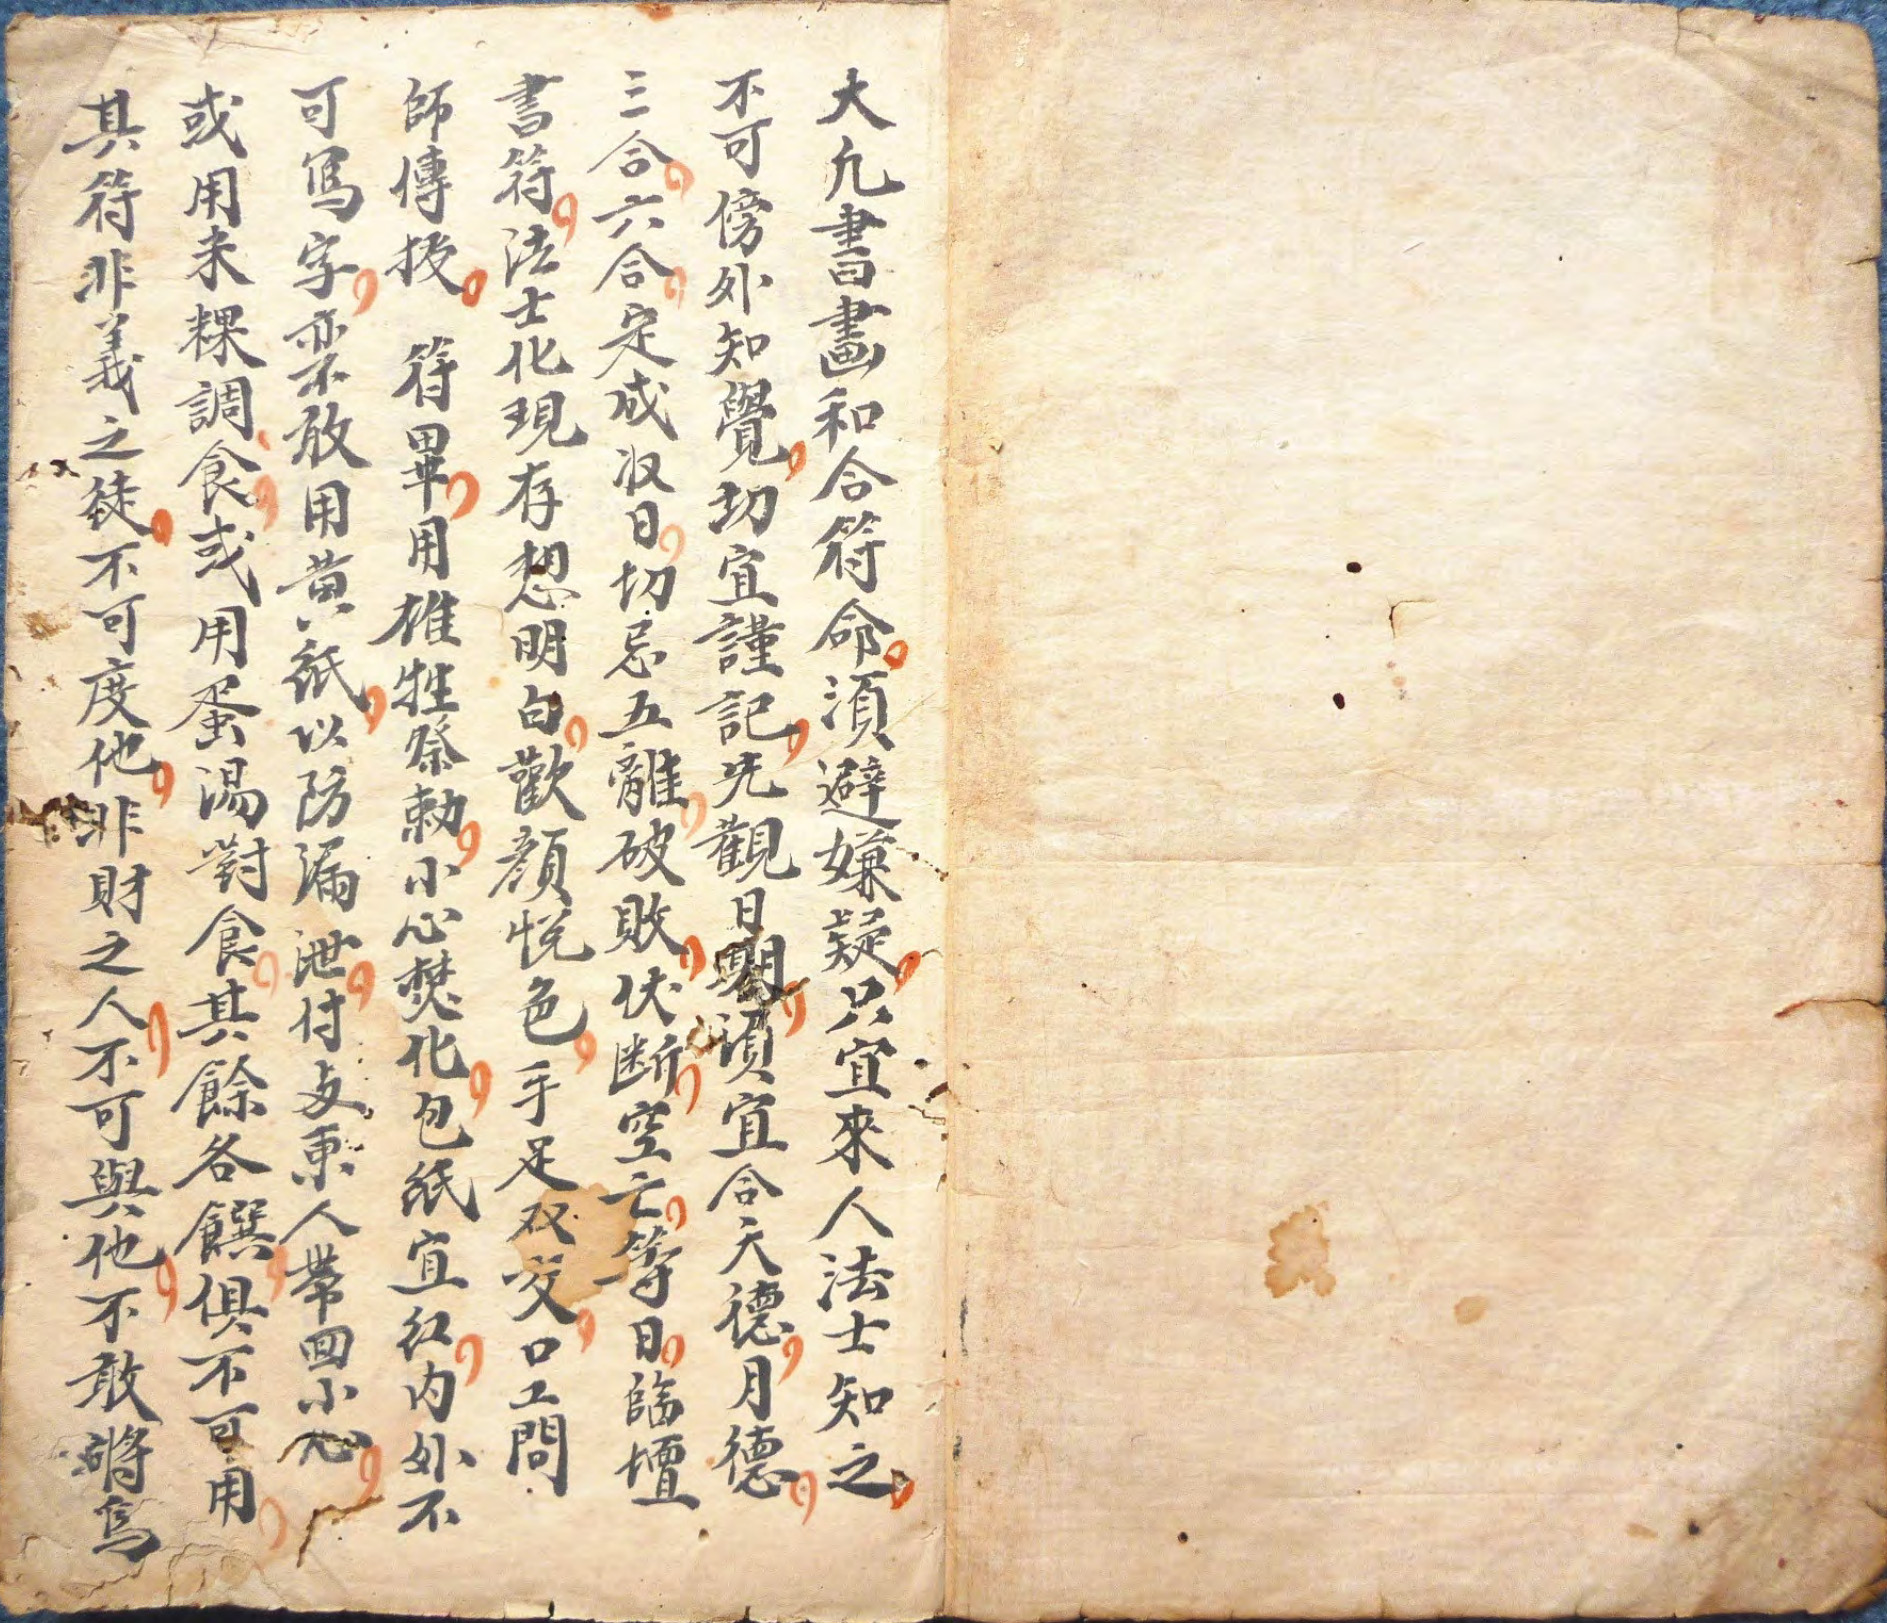 大凢書畫和合符命須避嫌疑只宜來人法士知之
不可傍外知覺切宜謹記先觀日期須宜合天德月德
三合六合定成收日切忌五離破敗伏断空亡等日臨壇
書符法士化現存想明白歡顔悦色手足双交口工問
師傳授 符畢用雄牲祭勅小心焚化包紙宜紅内外不
可寫字亦不敢用黄紙以防漏泄付与東人帶回小心
或用米粿調食或用蛋湯對食其餘各饌俱不可用
其符非義之徒不可度他非財之人不可與他不敢將爲